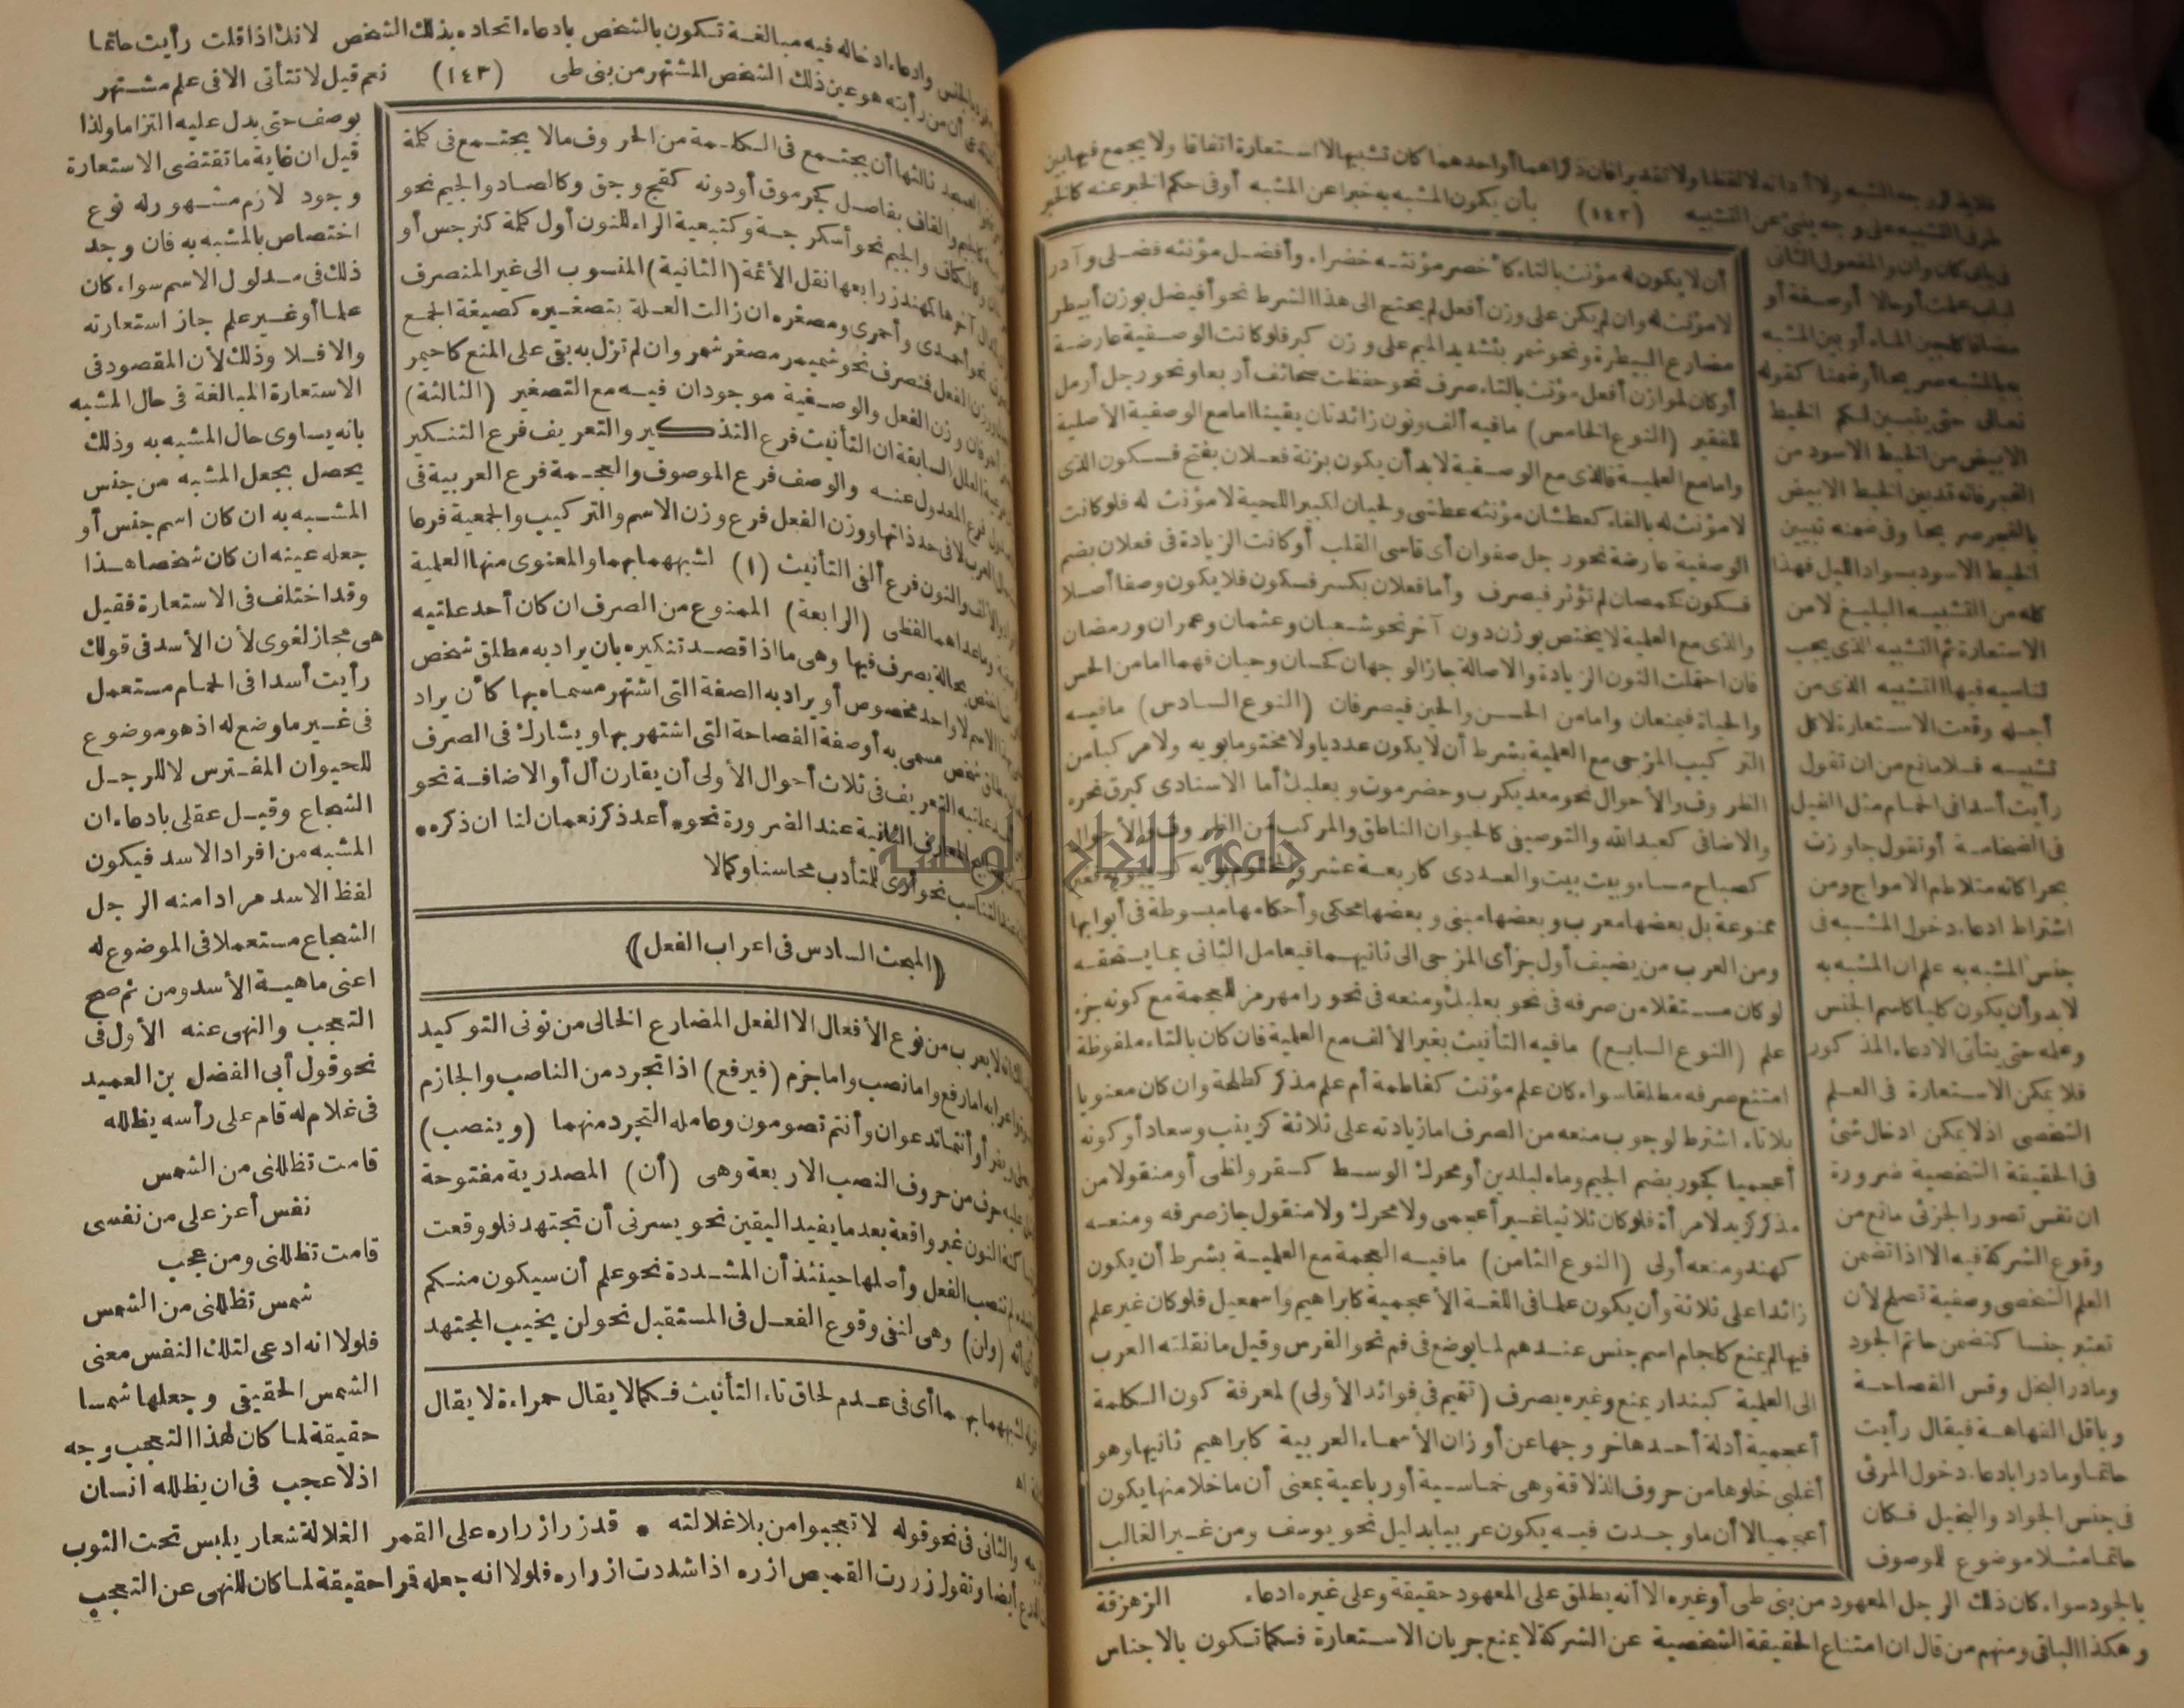 فلا يذكر وجه الشبه ولا أداته لا لفظا ولا تقديرا فان ذكرا معا أو أحدهما كان تشبيها لا استعارة اتفاقا ولا يجمع فيها بين
طرفى التشبيه على وجه ينبئ عن التشبيه (١٤٢) بأن يكون المشبه به خبرا عن المشبه أو فى حكم الخبر عنه كالخبر
أن لا يكون له مؤنث بالتاء كأخضر مؤنثه خضراء وأفضل مؤنثه فضلى وآدر
لا مؤنث له وان لم يكن على وزن أفعل لم يحتج الى هذا الشرط نحو أفيضل بوزن أبيطر
مضارع البيطرة ونحو شمر بتشديد الميم على وزن كبر فلو كانت الوصفية عارضة
أو كان لموازن أفعل مؤنث بالتاء صرف نحو حفظت صحائف أربعا ونحو رجل أرمل
للفقير (النوع الخامس) ما فيه ألف ونون زائدتان يقينا اما مع الوصفية الأصلية
واما مع العلمية فالذى مع الوصفية لابد أن يكون بزنة فعلان بفتح فسكون الذى
لا مؤنث له بالتاء كعطشان مؤنثه عطشى ولحيان لكبير اللحية لا مؤنث له فلو كانت
الوصفية عارضة نحو رجل صفوان أى قاسى القلب أو كانت الزيادة فى فعلان بضم
فسكون كخمصان لم تؤثر فيصرف وأما فعلان بكسر فسكون فلا يكون وصفا أصلا
والذى مع العلمية لا يختص بوزن دون آخر نحو شعبان وعثمان وعمران ورمضان
فان احتملت النون الزيادة والاصالة جاز الوجهان كحسان وحيان فهما اما من الحس
والحياة فيمنعان واما من الحسن والحين فيصرفان (النوع السادس) ما فيه
التركيب المزجى مع العلمية بشرط أن لا يكون عدديا ولا مختوما بويه ولا مركبا من
الظروف والأحوال نحو معديكرب وحضرموت وبعلبك أما الاسنادى كبرق نحره
والاضافى كعبد الله والتوصيفى كالحيوان الناطق والمركب من الظروف والأحوال
كصباح مساء وبيت بيت والعددى كاربعة عشر والمختوم بويه كسيبويه فغير
ممنوعة بل بعضها معرب وبعضها مبنى وبعضها محكى وأحكامها مبسوطة فى أبوابها
ومن العرب من يضيف أول جزأى المزجى الى ثانيهما فيعامل الثانى بما يستحقه
لو كان مستقلا من صرفه فى نحو بعلبك ومنعه فى نحو رامهرمز للعجمة مع كونه جزء
علم (النوع السابع) ما فيه التأنيث بغير الألف مع العلمية فان كان بالتاء ملفوظة
امتنع صرفه مطلقا سواء كان علم مؤنث كفاطمة أم علم مذكر كطلحة وان كان معنويا
بلا تاء اشترط لوجوب منعه من الصرف اما زيادته على ثلاثة كزينب وسعاد أو كونه
أعجميا كجور بضم الجيم وماه لبلدين أو محرك الوسط كسقر ولظى أو منقولا من
مذكر كزيد لامرأة فلو كان ثلاثيا غير أعجمى ولا محرك ولا منقول جاز صرفه ومنعه
كهند ومنعه أولى (النوع الثامن) ما فيه العجمة مع العلمية بشرط أن يكون
زائدا على ثلاثة وأن يكون علما فى اللغة الأعجمية كابراهيم واسمعيل فلو كان غير علم
فيها لم يمنع كلجام اسم جنس عندهم لما يوضع فى فم نحو الفرس وقيل ما نقلته العرب
الى العلمية كبندار يمنع وغيره يصرف (تتميم فى فوائد الأولى) لمعرفة كون الكلمة
أعجمية أدلة أحدها خروجها عن أوزان الأسماء العربية كابراهيم ثانيها وهو
أغلبى خلوها من حروف الذلاقة وهى خماسية أو رباعية بمعنى أن ما خلا منها يكون
أعجميا لا أن ما وجدت فيه يكون عربيا بدليل نحو يوسف ومن غير الغالب
فى باب كان وان والمفعول الثانى
لباب علمت أو حالا أو صفة أو
مضافا كلجين الماء أو بين المشبه
به بالمشبه صريحا أو ضمنا كقوله
تعالى حتى يتبين لكم الخيط
الابيض من الخيط الاسود من
الفجر فانه قد بين الخيط الابيض
بالفجر صريحا وفى ضمنه تبيين
الخيط الاسود بسواد الليل فهذا
كله من التشبيه البليغ لا من
الاستعارة ثم التشبيه الذى يجب
تناسيه فيها التشبيه الذى من
أجله وقعت الاستعارة لا كل
تشبيه فلا مانع من ان تقول
رأيت أسدا فى الحمام مثل الفيل
فى الضخامة أو تقول جاوزت
بحرا كأنه متلاطم الامواج ومن
اشتراط ادعاء دخول المشبه فى
جنس المشبه به علم ان المشبه به
لابد وأن يكون كليا كاسم الجنس
وعلمه حتى يتأتى الادعاء المذكور
فلا يمكن الاستعارة فى العلم
الشخصى اذ لا يمكن ادخال شئ
فى الحقيقة الشخصية ضرورة
ان نفس تصور الجزئى مانع من
وقوع الشركة فيه الا اذا تضمن
العلم الشخصى وصفية تصلح لأن
تعتبر جنسا كتضمن حاتم الجود
ومادر البخل وقس الفصاحة
وباقل الفهاهة فيقال رأيت
حاتما ومادرا بادعاء دخول المرئى
فى جنس الجواد والبخيل فكان
حاتما مثلا موضوع للموصوف
بالجود سواء كان ذلك الرجل المعهود من بنى طى أو غيره الا أنه يطلق على المعهود حقيقة وعلى غيره ادعاء
الزهزقة
وهكذا الباقى ومنهم من قال ان امتناع الحقيقة الشخصية عن الشركة لا يمنع جريان الاستعارة فكما تكون بالاجناس
بالجنس وادعاء ادخاله فيه مبالغة تكون بالشخص بادعاء اتحاده بذلك الشخص لانك اذا قلت رأيت حاتما
أن من رأيته هو عين ذلك الشخص المشتهر من بنى طى (١٤٣) نعم قيل لا تتأتى الا فى علم مشتهر
ثالثها أن يجتمع فى الكلمة من الحروف ما لا يجتمع فى كلمة
والقاف بفاصل كجرموق أو دونه كقبج وجق وكالصاد والجيم نحو
وكالكاف والجيم نحو أسكرجة وكتبعية الراء للنون أول كلمة كنرجس أو
آخرها كمهندز رابعها نقل الأئمة (الثانية) المنسوب الى غير المنصرف
نحو أحمدى وأحمرى ومصغره ان زالت العلة بتصغيره كصيغة الجمع
ووزن الفعل فنصرف نحو شميمر مصغر شمر وان لم تزل به بقى على المنع كاحيمر
وزن الفعل والوصفية موجودان فيه مع التصغير (الثالثة)
العلل السابقة ان التأنيث فرع التذكير والتعريف فرع التنكير
فرع المعدول عنه والوصف فرع الموصوف والعجمة فرع العربية فى
العرب لا فى حد ذاتها ووزن الفعل فرع وزن الاسم والتركيب والجمعية فرعا
والألف والنون فرع ألفى التأنيث (١) لشبههما بهما والمعنوى منها العلمية
وما عداهما لفظى (الرابعة) الممنوع من الصرف ان كان أحد علتيه
اختص بحالة يصرف فيها وهى ما اذا قصد تنكيره بان يراد به مطلق شخص
الاسم لا واحد مخصوص أو يراد به الصفة التى اشتهر مسماه بها كأن يراد
مطلق شخص مسمى به أو صفة الفصاحة التى اشتهر بها ويشارك فى الصرف
علتيه التعريف فى ثلاث أحوال الأولى أن يقارن أل أو الاضافة نحو
المعارف الثانية عند الضرورة نحو • أعد ذكر نعمان لنا ان ذكره •
التناسب نحو أرى للمتأدب محاسنا وكمالا
﴿المبحث السادس فى اعراب الفعل﴾
لا يعرب من نوع الأفعال الا الفعل المضارع الخالى من نونى التوكيد
واعرابه اما رفع واما نصب واما جزم (فيرفع) اذا تجرد من الناصب والجازم
أو أنتما تدعوان وأنتم تصومون وعامله التجرد منهما (وينصب)
عليه حرف من حروف النصب الاربعة وهى (أن) المصدرية مفتوحة
ساكنة النون غير واقعة بعد ما يفيد اليقين نحو يسرنى أن تجتهد فلو وقعت
لم تنصب الفعل وأصلها حينئذ أن المشددة نحو علم أن سيكون منكم
(ولن) وهى لنفى وقوع الفعل فى المستقبل نحو لن يخيب المجتهد
لشبههما بهما أى فى عدم لحاق تاء التأنيث فكما لا يقال حمراءة لا يقال
اه
بوصف حتى يدل عليه التزاما ولذا
قيل ان غاية ما تقتضى الاستعارة
وجود لازم مشهور له نوع
اختصاص بالمشبه به فان وجد
ذلك فى مدلول الاسم سواء كان
علما أو غير علم جاز استعارته
والا فلا وذلك لأن المقصود فى
الاستعارة المبالغة فى حال المشبه
بانه يساوى حال المشبه به وذلك
يحصل بجعل المشبه من جنس
المشبه به ان كان اسم جنس أو
جعله عينه ان كان شخصا هذا
وقد اختلف فى الاستعارة فقيل
هى مجاز لغوى لأن الأسد فى قولك
رأيت أسدا فى الحمام مستعمل
فى غير ما وضع له اذ هو موضوع
للحيوان المفترس لا للرجل
الشجاع وقيل عقلى بادعاء ان
المشبه من افراد الاسد فيكون
لفظ الاسد مرادا منه الرجل
الشجاع مستعملا فى الموضوع له
اعنى ماهية الأسد ومن ثم صح
التعجب والنهى عنه الأول فى
نحو قول أبى الفضل بن العميد
فى غلام له قام على رأسه يظلله
قامت تظللنى من الشمس
نفس أعز على من نفسى
قامت تظللنى ومن عجب
شمس تظللنى من الشمس
فلولا انه ادعى لتلك النفس معنى
الشمس الحقيقى وجعلها شمسا
حقيقة لما كان لهذا التعجب وجه
اذ لا عجب فى ان يظلله انسان
والثانى فى نحو قوله لا تعجبوا من بلا غلالته • قد زر ازراره على القمر الغلالة شعار يلبس تحت الثوب
أيضا وتقول زررت القميص ازره اذا شددت ازراره فلولا انه جعله قمرا حقيقة لما كان للنهى عن التعجب
جامعة النجاح الوطنية